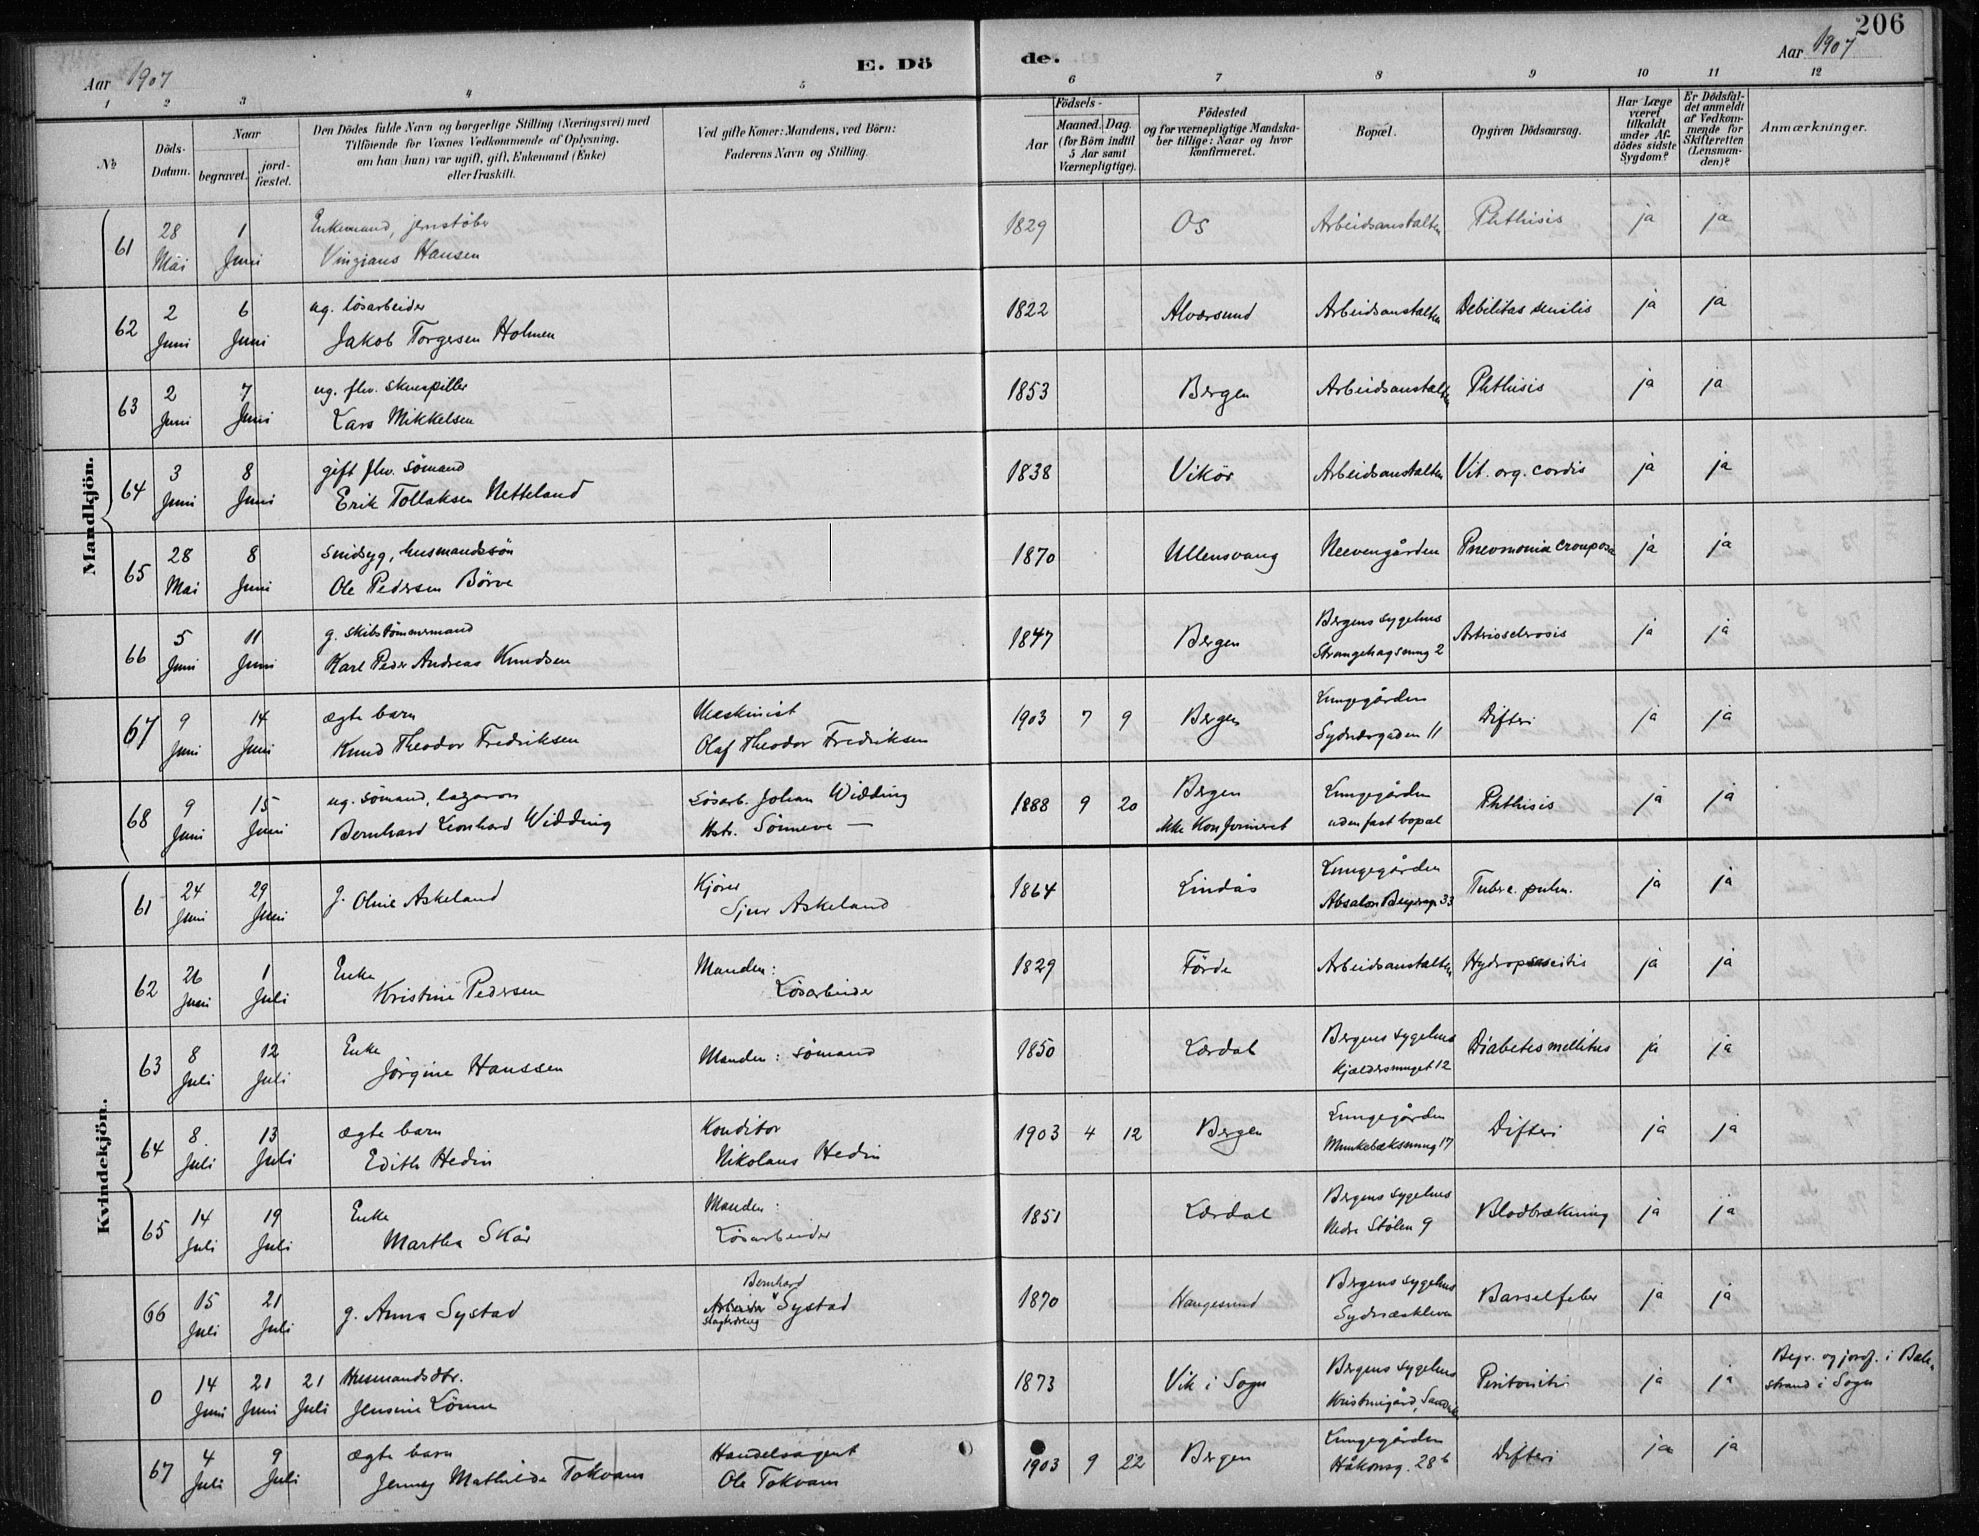 206
Aar 1907
E. Dö
de.
Aar 1907
1 2 3 4 5 6 7 8 9 10 11 12
№
Döds-Datum.
Naar
begravet.
jord-fæstet.
Den Dödes fulde Navn og borgerlige Stilling (Næringsvei) med
Tilföiende for Voxnes Vedkommende af Oplysning,
om han (hun) var ugift, gift, Enkemand (Enke)
eller fraskilt.
Ved gifte Koner: Mandens, ved Börn:
Faderens Navn og Stilling.
Födsels-
Aar
Maaned. Dag.
(for Börn indtil
5 Aar samt
Værnepligtige).
Födested
og for værnepligtige Mandska-
ber tillige: Naar og hvor
konfirmeret.
Bopæl.
Opgiven Dödsaarsag.
Har Læge
været
tilkaldt
under Af-
dödes sidste
Sygdom?
Er Dödsfal-
det anmeldt
af Vedkom-
mende for
Skifteretten
(Lensman-
den)?
Anmærkninger.
Mandkjön.
61 28 Mai 1 Juni Enkemand, jernstøber
Vingians Hansen 1829 Os Arbeidsanstalten Phthisis ja ja
62 2 Juni 6 Juni ug. løsarbeider
Jakob Torgersen Holmen 1822 Alversund Arbeidsanstalten Debilitas senilis ja ja
63 2 Juni 7 Juni ug. fhv. skuespiller
Lars Mikkelsen 1853 Bergen Arbeidsanstalten Phthisis ja ja
64 3 Juni 8 Juni gift fhv. sømand
Erik Tollaksen Netteland 1838 Vikør Arbeidsanstalten Vit. org. cordis ja ja
65 28 Mai 8 Juni sindsyg, husmandssøn
Ole Pedersen Børve 1870 Ullensvang Neevengården Pnevmonia crouposa ja ja
66 5 Juni 11 Juni g. skibstømmermand
Karl Peder Andreas Knudsen 1847 Bergen Bergens sygehus
Strangehagsmug 2 Arteriosclerosis ja ja
67 9 Juni 14 Juni ægte barn
Knud Theodor Fredriksen Maskinist
Olaf Theodor Fredriksen 1903 7 9 Bergen Lungegården
Sydnæsgaden 11 Difteri ja ja
68 9 Juni 15 Juni ug. sømand, lazaron
Bernhard Leonhard Widding Løsarb. Johan Widding
Hstr. Sønneve — 1888 9 20 Bergen
ikke Konfirmeret Lungegården
uden fast bopæl Phthisis ja ja
Kvindekjön.
61 24 Juni 29 Juni g. Oline Askeland Kjører
Sjur Askeland 1864 Lindås Lungegården
Absalon Beyersg. 33 Tuberc. pulm. ja ja
62 26 Juni 1 Juli Enke
Kristine Pedersen Manden:
Løsarbeider 1829 Førde Arbeidsanstalten Hydrops ascitis ja ja
63 8 Juli 12 Juli Enke
Jørgine Hanssen Manden: sømand 1850 Lærdal Bergens sygehus
Kjældersmuget 12 Diabetes mellitus ja ja
64 8. Juli 13 Juli ægte barn
Edith Hedin Konditor
Nikolaus Hedin 1903 4 12 Bergen Lungegården
Munkebæksmug 17 Difteri ja ja
65 14 Juli 19 Juli Enke
Martha Skår Manden:
Løsarbeider 1851 Lærdal Bergens sygehus
Nedre Stølen 9 Blodbrækning ja ja
66 15 Juli 21 Juli g. Anna Systad Bernhard
Arbeider Systad
Slagterdreng 1870 Haugesund Bergens sygehus
Sydnæskleven Barselfeber ja ja
0 14 Juni 21 Juni 21 Juli Husmandsdtr.
Jensine Lønne 1873 Vik i Sogn Bergens sygehus
Kristinegård, Sandviken Peritonitis ja ja Begr. og jordf. i Bale-
strand i Sogn
67 4 Juli 9 Juli ægte barn
Jenny Mathilde Tokvam Handelsagent
Ole Tokvam 1903 9 22 Bergen Lungegården
Håkonsg. 28b Difteri ja ja